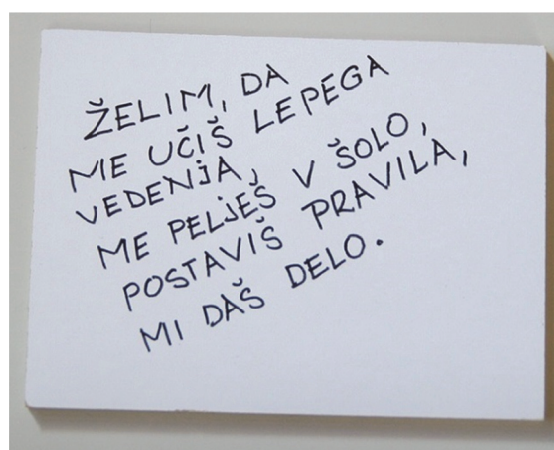 ŽELIM, DA
ME UČIŠ LEPEGA
VEDENJA,
ME PELJEŠ V ŠOLO,
POSTAVIŠ PRAVILA,
MI DAŠ DELO.